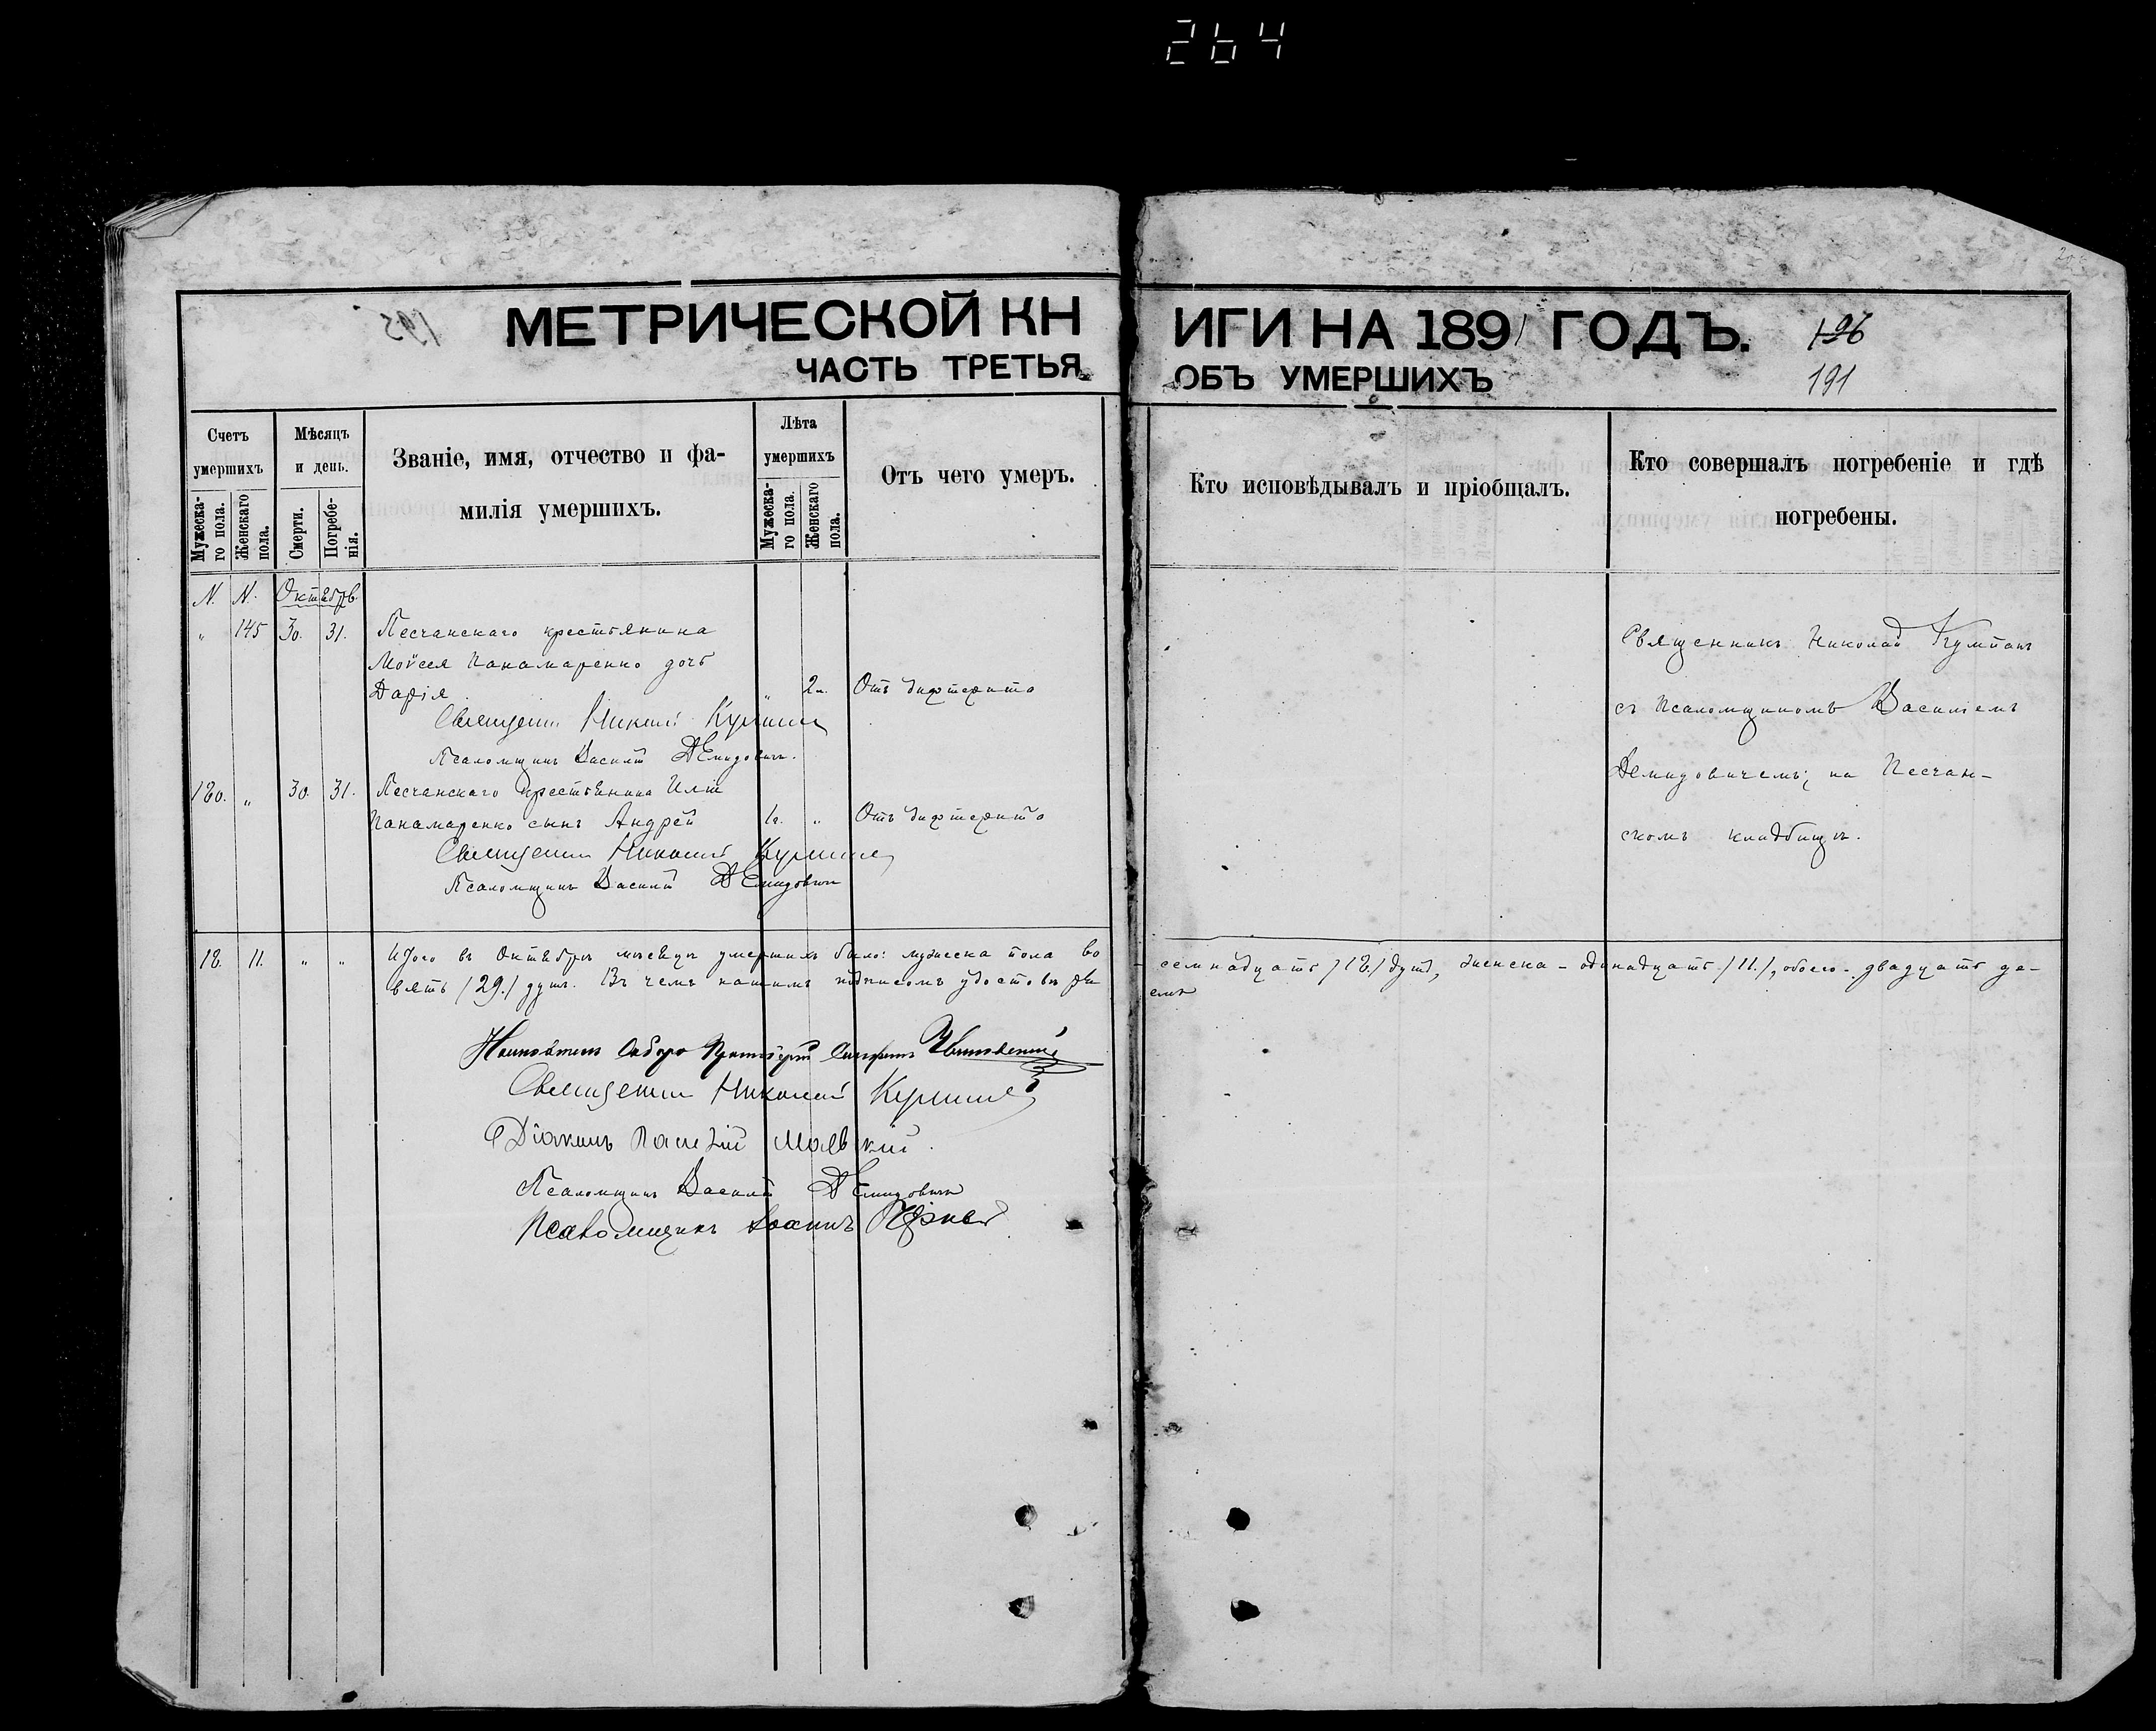 264
195
МЕТРИЧЕСКОЙ КНИГИ НА 1891 ГОДЪ.
196
ЧАСТЬ ТРЕТЬЯ ОБЪ УМЕРШИХЪ
191
Счетъ умершихъ
Мужескаго пола.
Женскаго пола.
Мѣсяцъ и день.
Смерти.
Погребенія.
Званіе, имя, отчество и фа-
милія умершихъ.
Лѣта умершихъ
Мужескаго пола.
Женскаго пола.
Отъ чего умеръ.
Кто исповѣдывалъ и пріобщалъ.
Кто совершалъ погребеніе и гдѣ
погребены.
N. N. Октябрь
" 145 30. 31. Песчанскаго крестьянина
Моѵсея Панамаренко дочь
Дарія " 2 Отъ дифтерита
Священникъ Николай
Псаломщикъ Василій Демидовичъ.
180. " 30. 31. Песчанскаго крестьянина Иліи
Панамаренко сынъ Андрей 1 " Отъ дифтерита
Священникъ Николай
Псаломщикъ Василій Демидовичъ
Священникъ Николай
съ Псаломщикомъ Василіемъ
Демидовичемъ; на Песчан-
скомъ кладбищѣ.
18. 11. " " Итого въ Октябрѣ мѣсяцѣ умершихъ было: мужеска пола во
семнадцать /18./ душъ, женска - одинадцать /11./, обоего - двадцать де-
вять /29./ душъ. Въ чемъ нашимъ подписомъ удостовѣря
емъ
Священникъ Николай
Діаконъ
Псаломщикъ Василій Демидовичъ
Псаломщикъ Іоаннъ